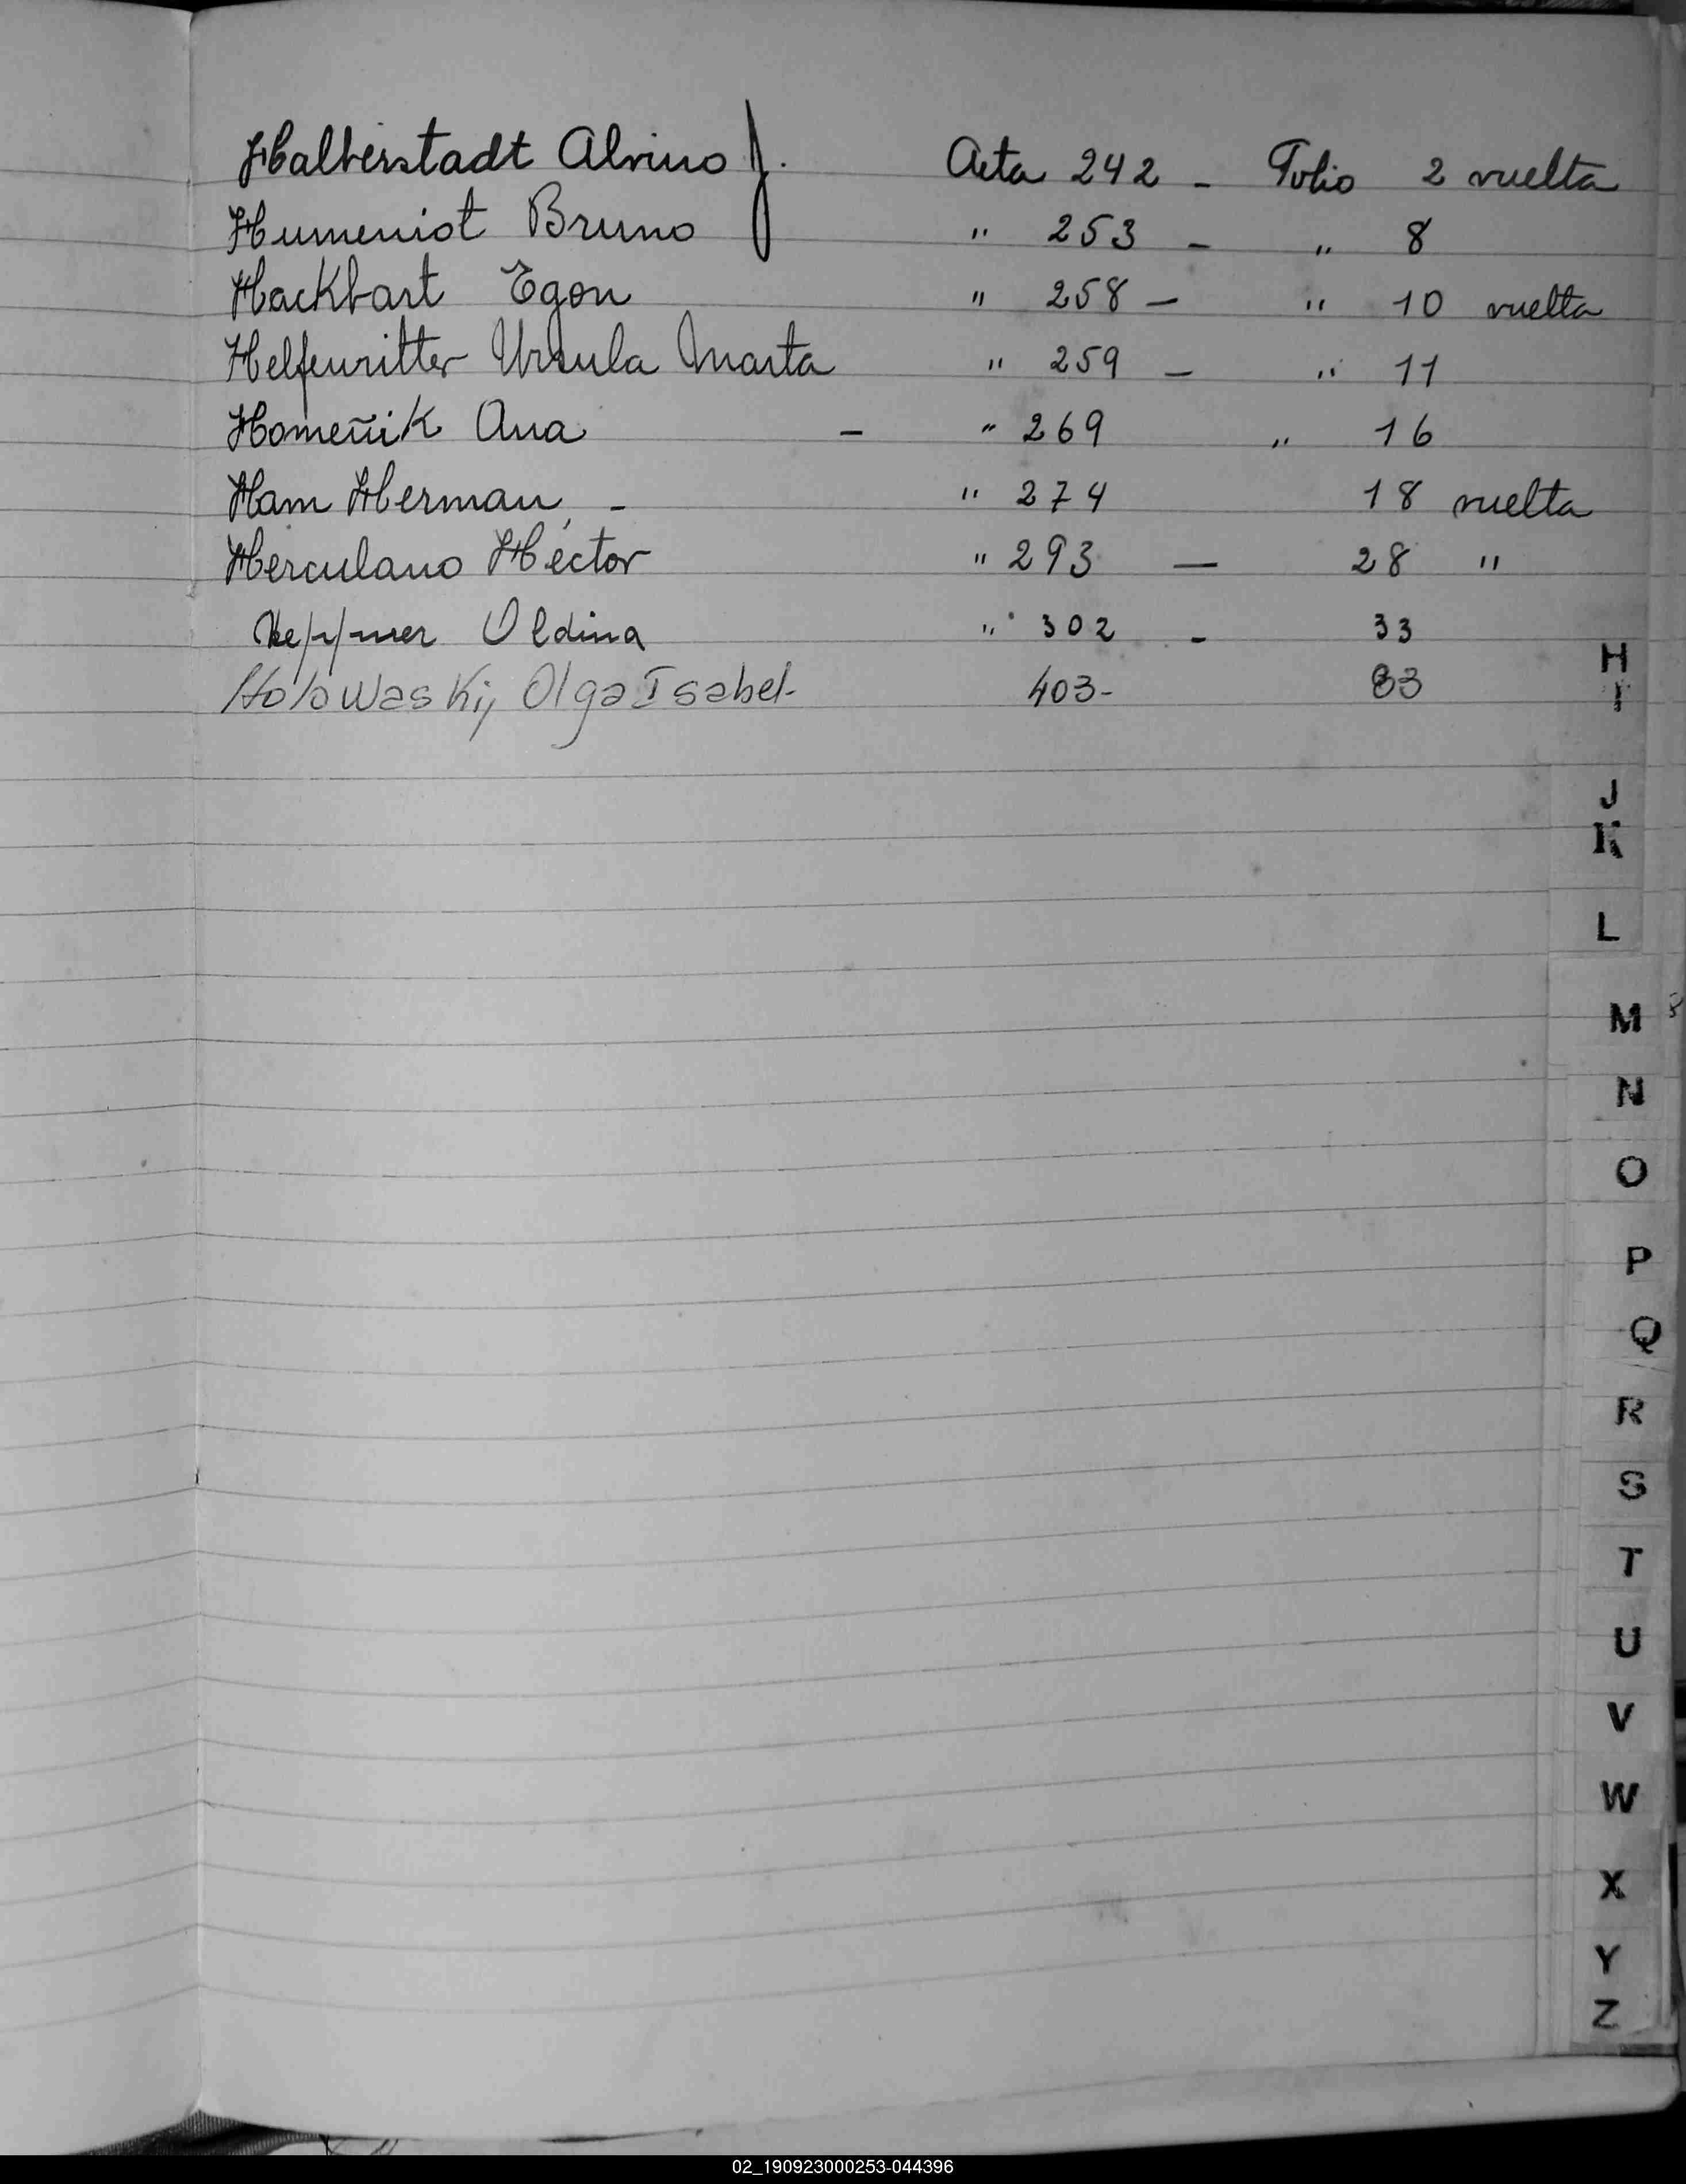 Halberstadt Alvino J. Acta 242 - Folio 2 vuelta
Humeniot Bruno " 253 - " 8
Hackbart Egon " 258 - " 10 vuelta
Helfenritter Ursula Marta " 259 - " 11
Homeñik Ana - " 269 " 16
Ham Herman - " 274 18 vuelta
Herculano Héctor " 293 - 28 "
Heppner Oldina " 302 - 33
Holowaski, Olga Isabel- 403- 83
H
I
J
K
L
M
N
O
P
Q
R
S
T
U
V
W
X
Y
Z
02_190923000253-044396